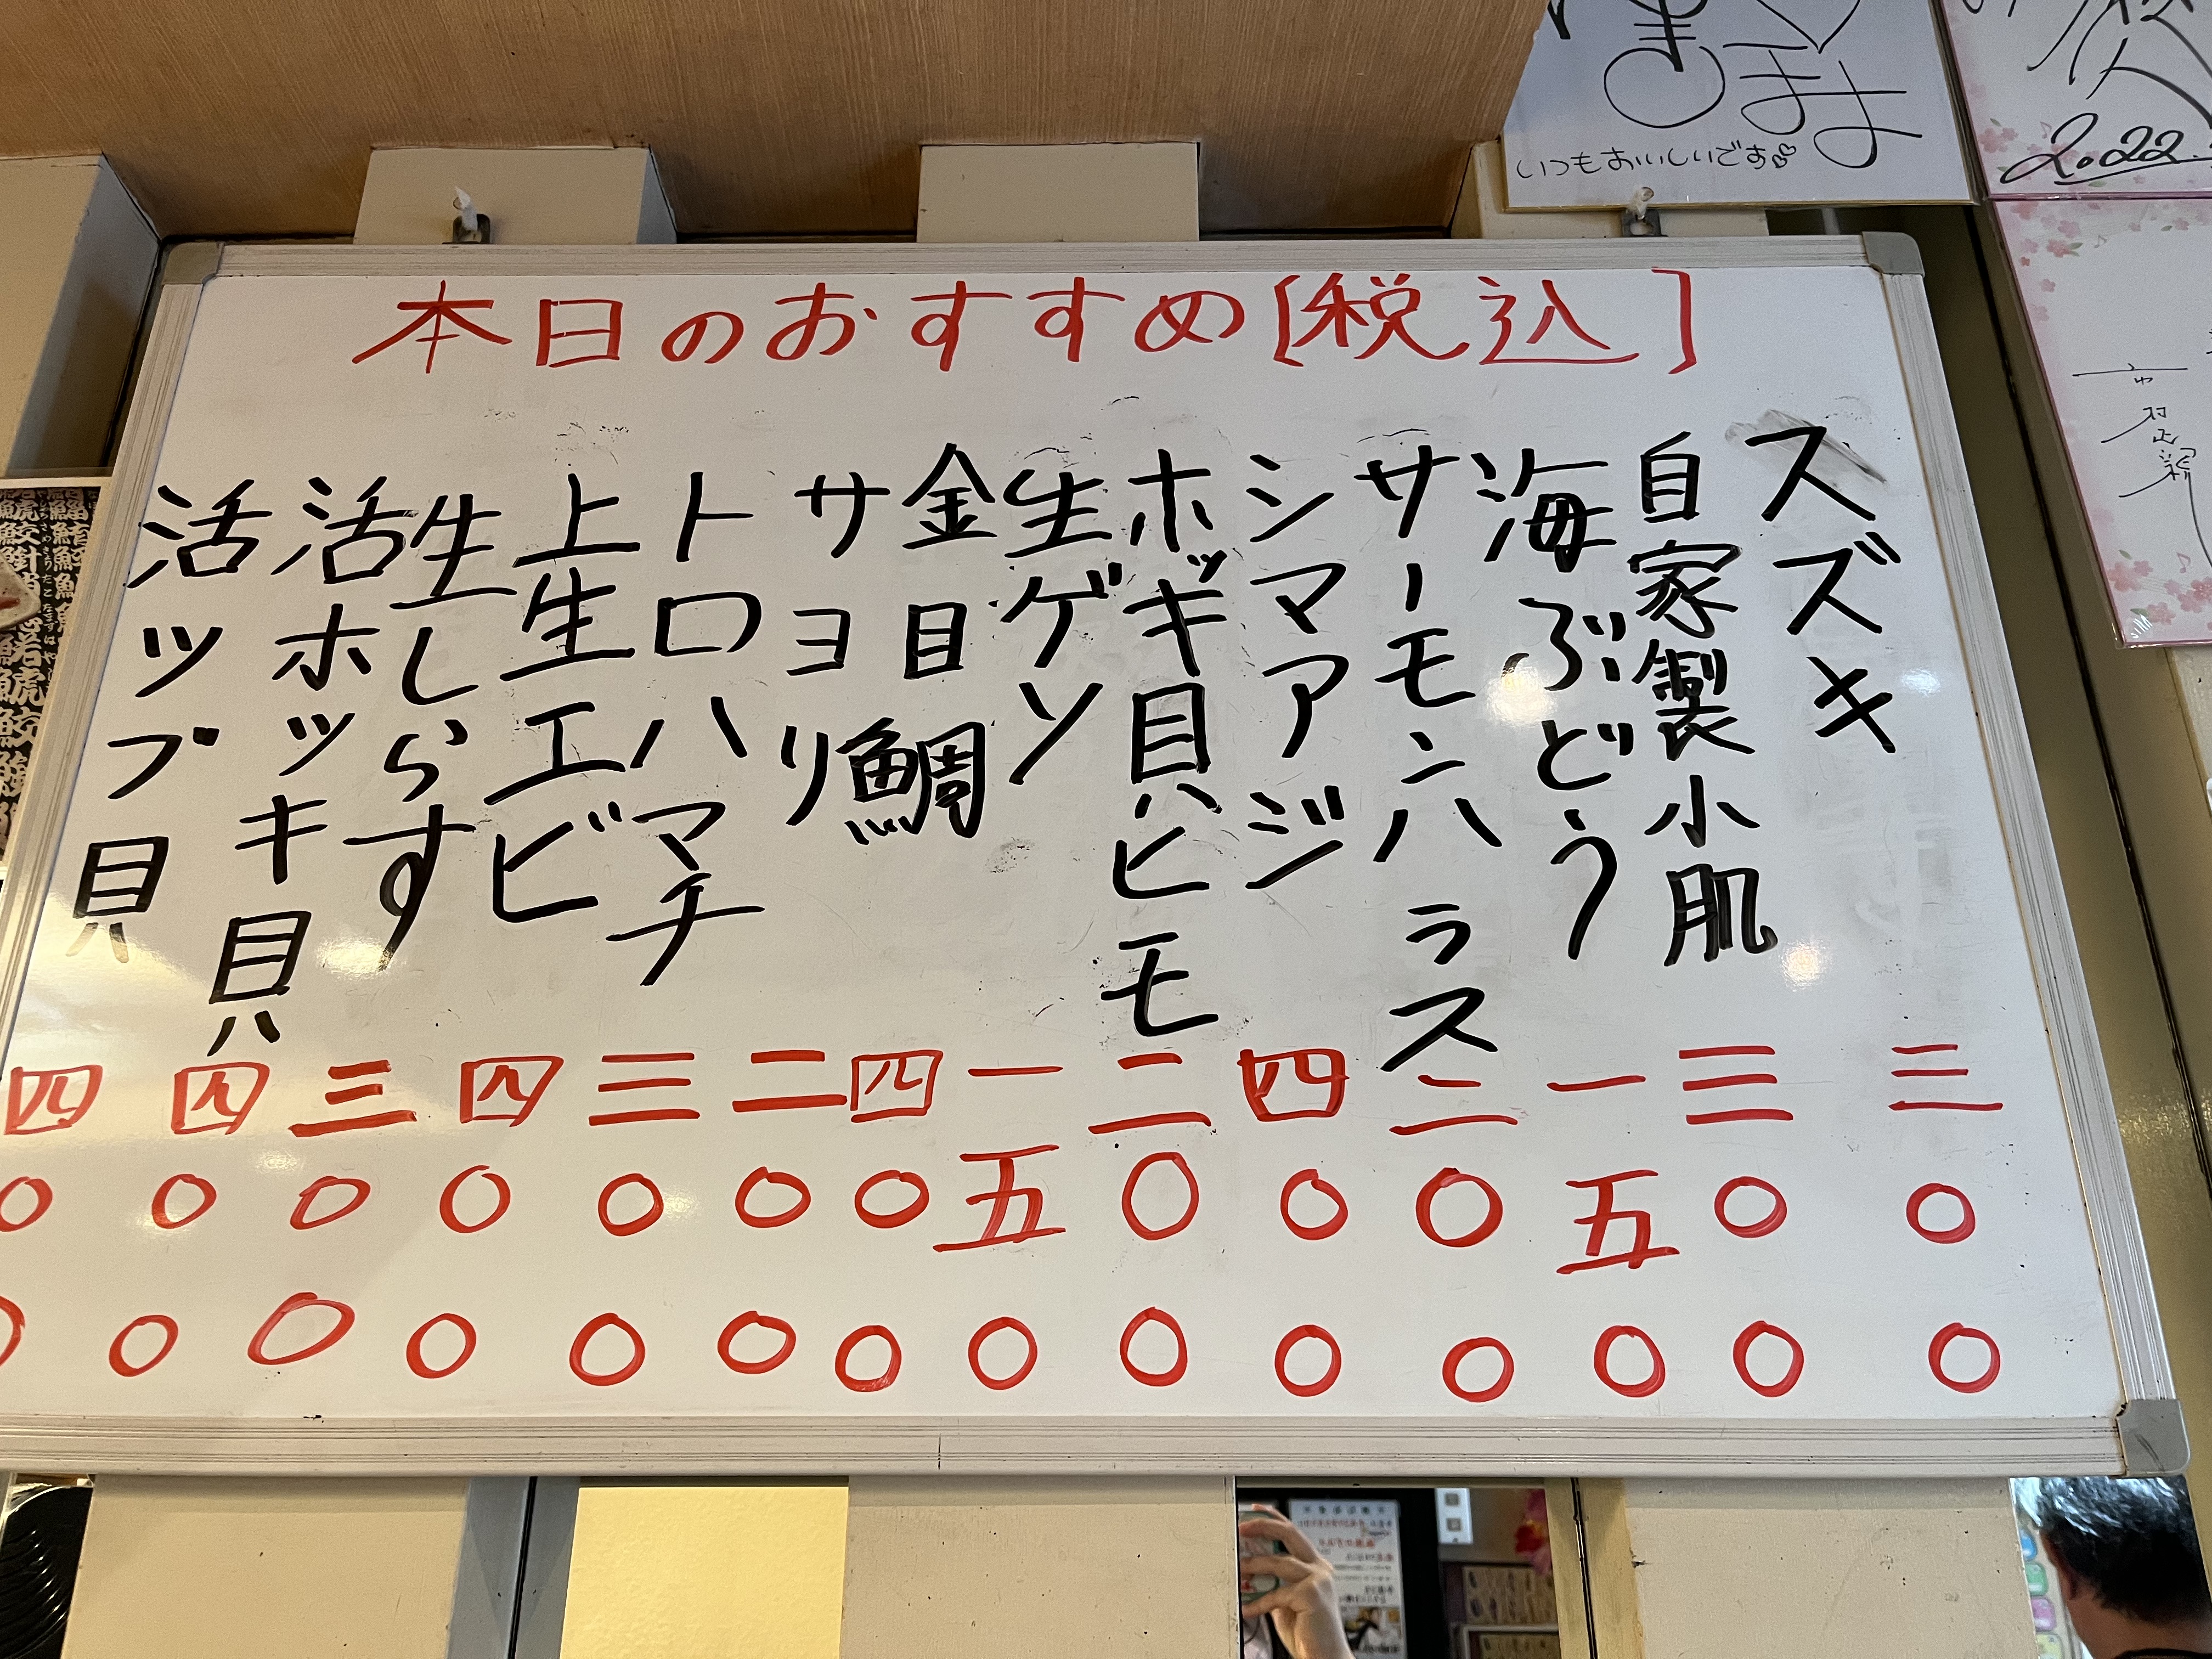 本日のおすすめ[税込]
スズキ 三〇〇
自家製小肌 三〇〇
海ぶどう 一五〇
サーモンハラス 二〇〇
シマアジ 四〇〇
ホッキ貝ヒモ 二〇〇
生ゲソ 一五〇
金目鯛 四〇〇
サヨリ 二〇〇
トロハマチ 三〇〇
上生エビ 四〇〇
生しらす 三〇〇
活ホッキ貝 四〇〇
活ツブ貝 四〇〇
いつもおいしいです
2022.